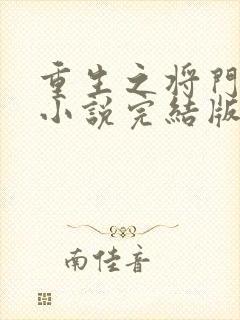 重生之将門
小說完結版
南佳音